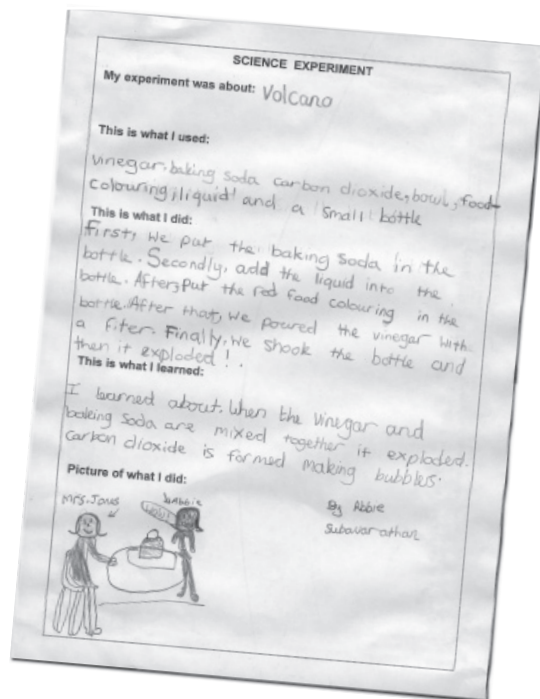 SCIENCE EXPERIMENT
My experiment was about: Volcano
This is what I used:
vinegar, baking soda carbon dioxide, bowl, food
colouring, liquid and a small bottle
This is what I did:
First, we put the baking soda in the
bottle. Secondly, add the liquid into the
bottle. After, put the red food colouring in the
bottle. After that, we poured the vinegar with
a fiter. Finally, we shook the bottle and
then it exploded!.
This is what I learned:
I learned about. When the vinegar and
baking soda are mixed together it exploded.
carbon dioxide is formed making bubbles.
Picture of what I did:
Mrs. Jones
By Abbie
Subavarathan